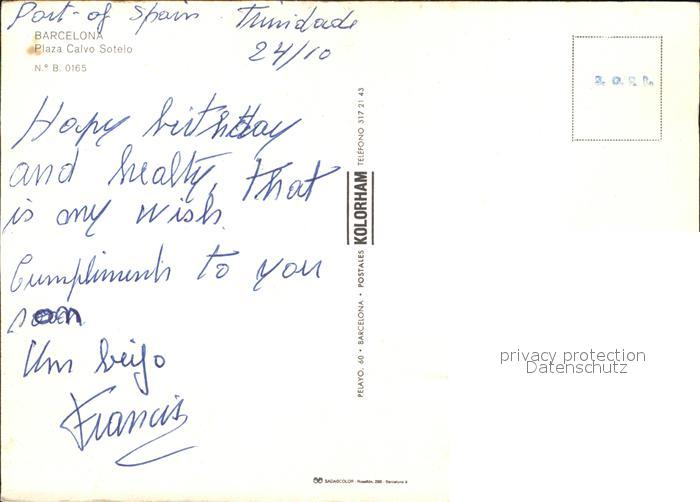 Port-of Spain Trinidade
24/10
BARCELONA
Plaza Calvo Sotelo
N.º B. 0165
Hapy birthday
and healty, that
is my wish.
Cumpliments to you
soon
Um beijo
Francis
PELAYO, 60 • BARCELONA • POSTALES KOLORHAM TELÉFONO 317 21 43
privacy protection
Datenschutz
SADAGCOLOR - Rosellón, - Barcelona